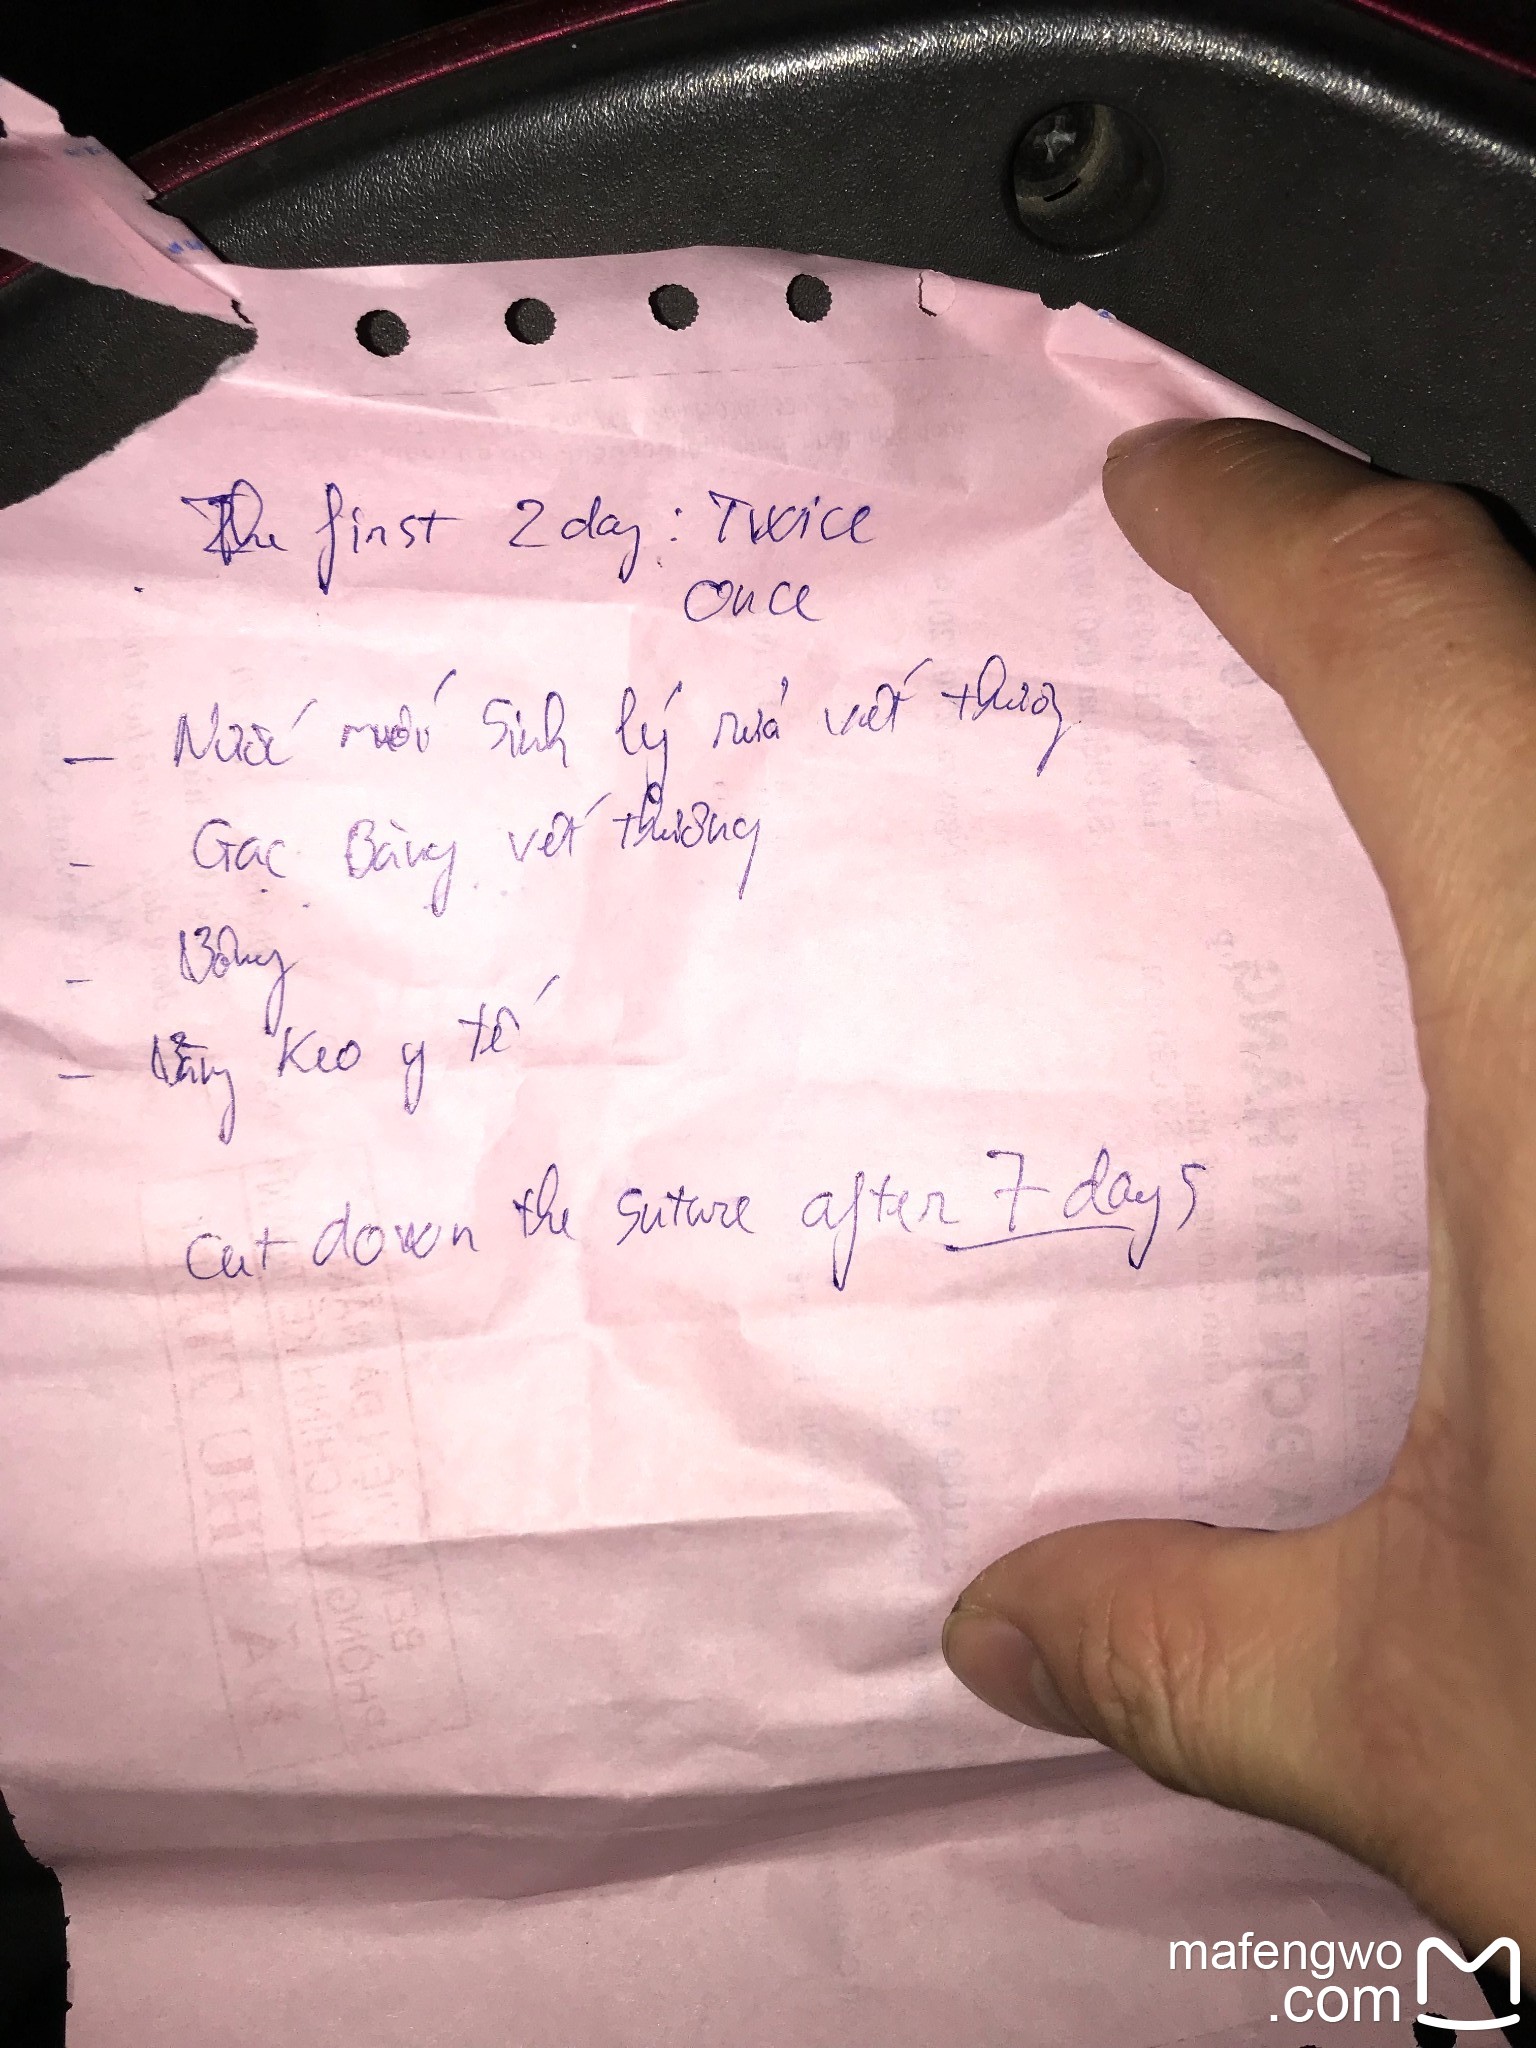 The first 2 day: Twice
once
- Nước muối sinh lý rửa vết thương
- Gạc Băng vết thương
- Bông
- Băng keo y tế
cut down the suture after 7 days
mafengwo
.com